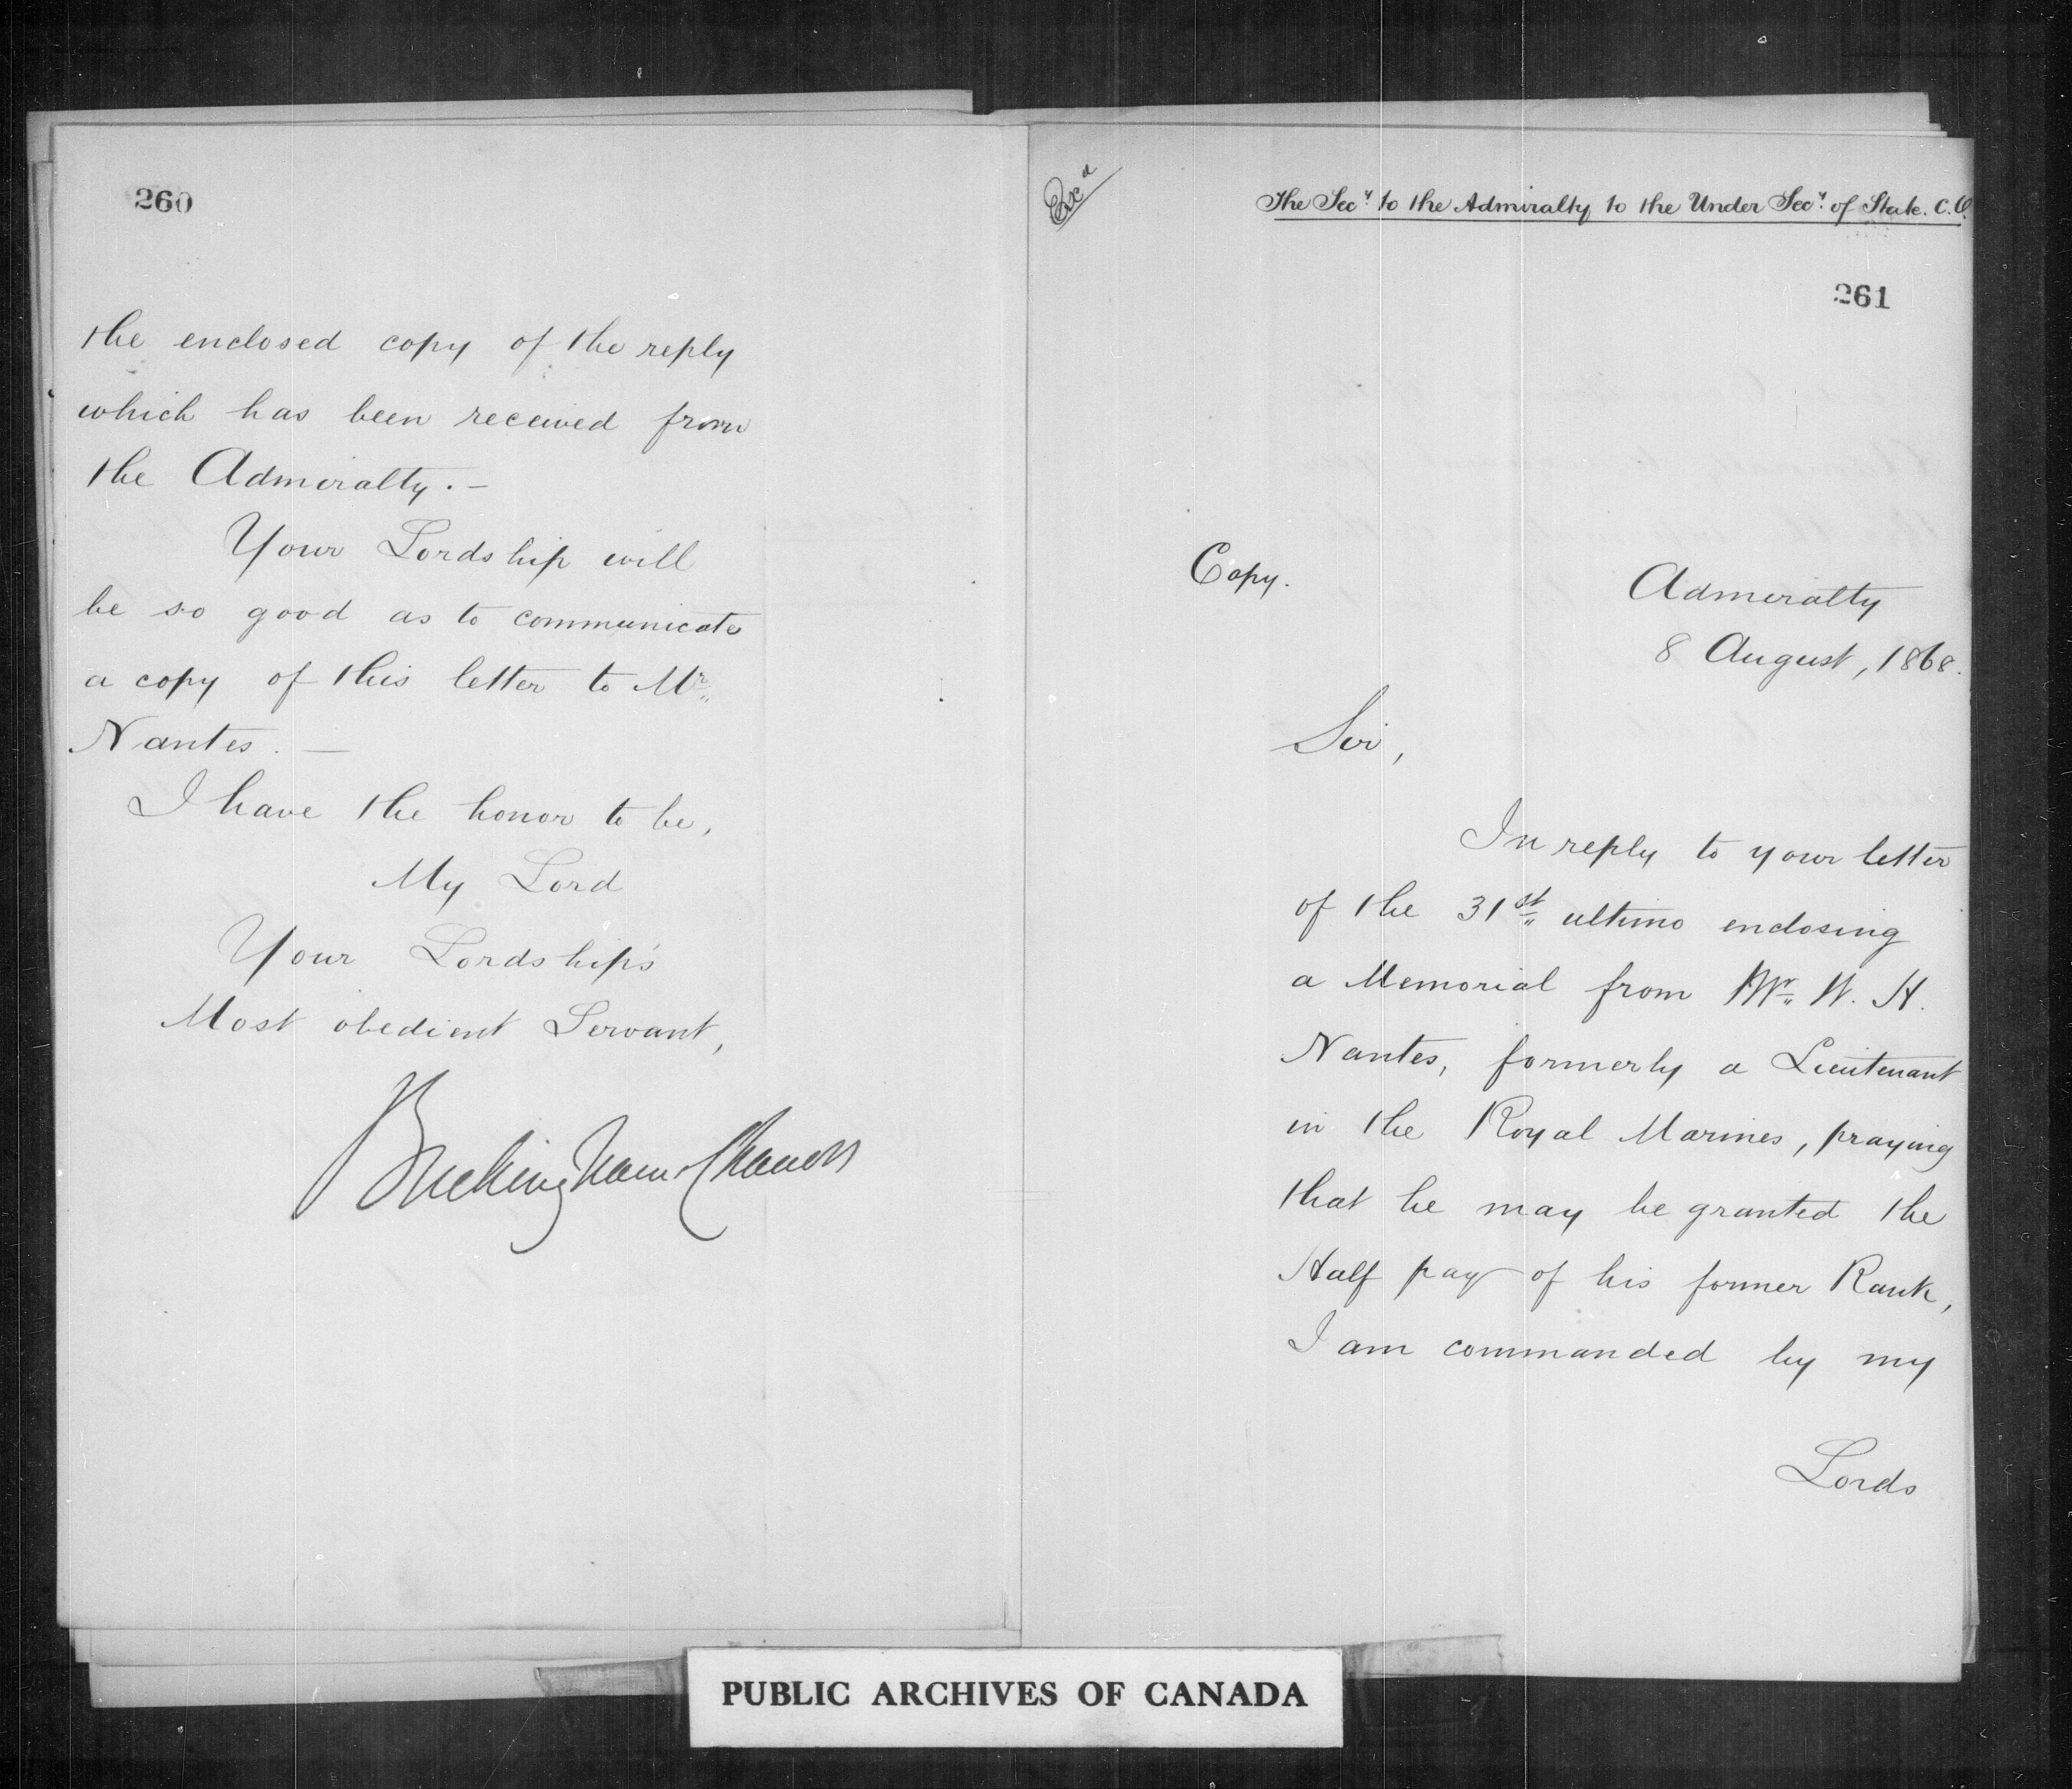 260
the enclosed copy of the reply
which has been received from
the Admiralty. —
Your Lordship will
be so good as to communicate
a copy of this letter to Mr.
Nantes. —
I have the honor to be,
My Lord
Your Lordship's
Most obedient Servant,
Buckingham & Chandos
The Secy. to the Admiralty to the Under Secy. of State. C.O.
261
Copy.
Admiralty
8 August, 1868.
Sir,
In reply to your letter
of the 31st ultimo enclosing
a Memorial from Mr. W. H.
Nantes, formerly a Lieutenant
in the Royal Marines, praying
that he may be granted the
Half pay of his former Rank,
I am commanded by my
Lords
PUBLIC ARCHIVES OF CANADA